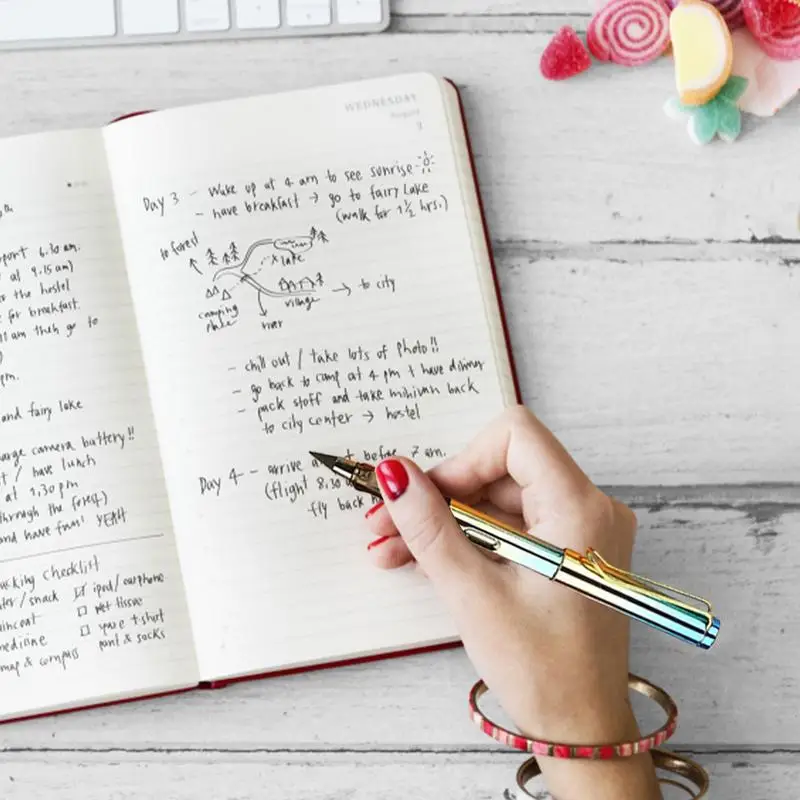 port 6.10 am.
at 9.15 am)
to the hostel
e for breakfast.
11 am then go to
)
pm.
and fairy lake
arge camera battery!!
t / have lunch
at 1,30 pm
through the forest)
and have fun! YEAH
cking checklist
ter / snack ipod / earphone
aincoat wet tissue
medicine spare t-shirt
map & compass pant & socks
WEDNESDAY
August
9
Day 3 - Wake up at 4 am to see sunrise
- have breakfast → go to fairy Lake
(walk for 1 1/2 hrs.)
to forest
x lake
→ to city
village
camping
place
river
- chill out / take lots of photo!!
- go back to camp at 4 pm + have dinner
- pack stoff and take minivan back
to city center → hostel
Day 4 - arrive a t before 7 am.
(flight 8,30
fly back h